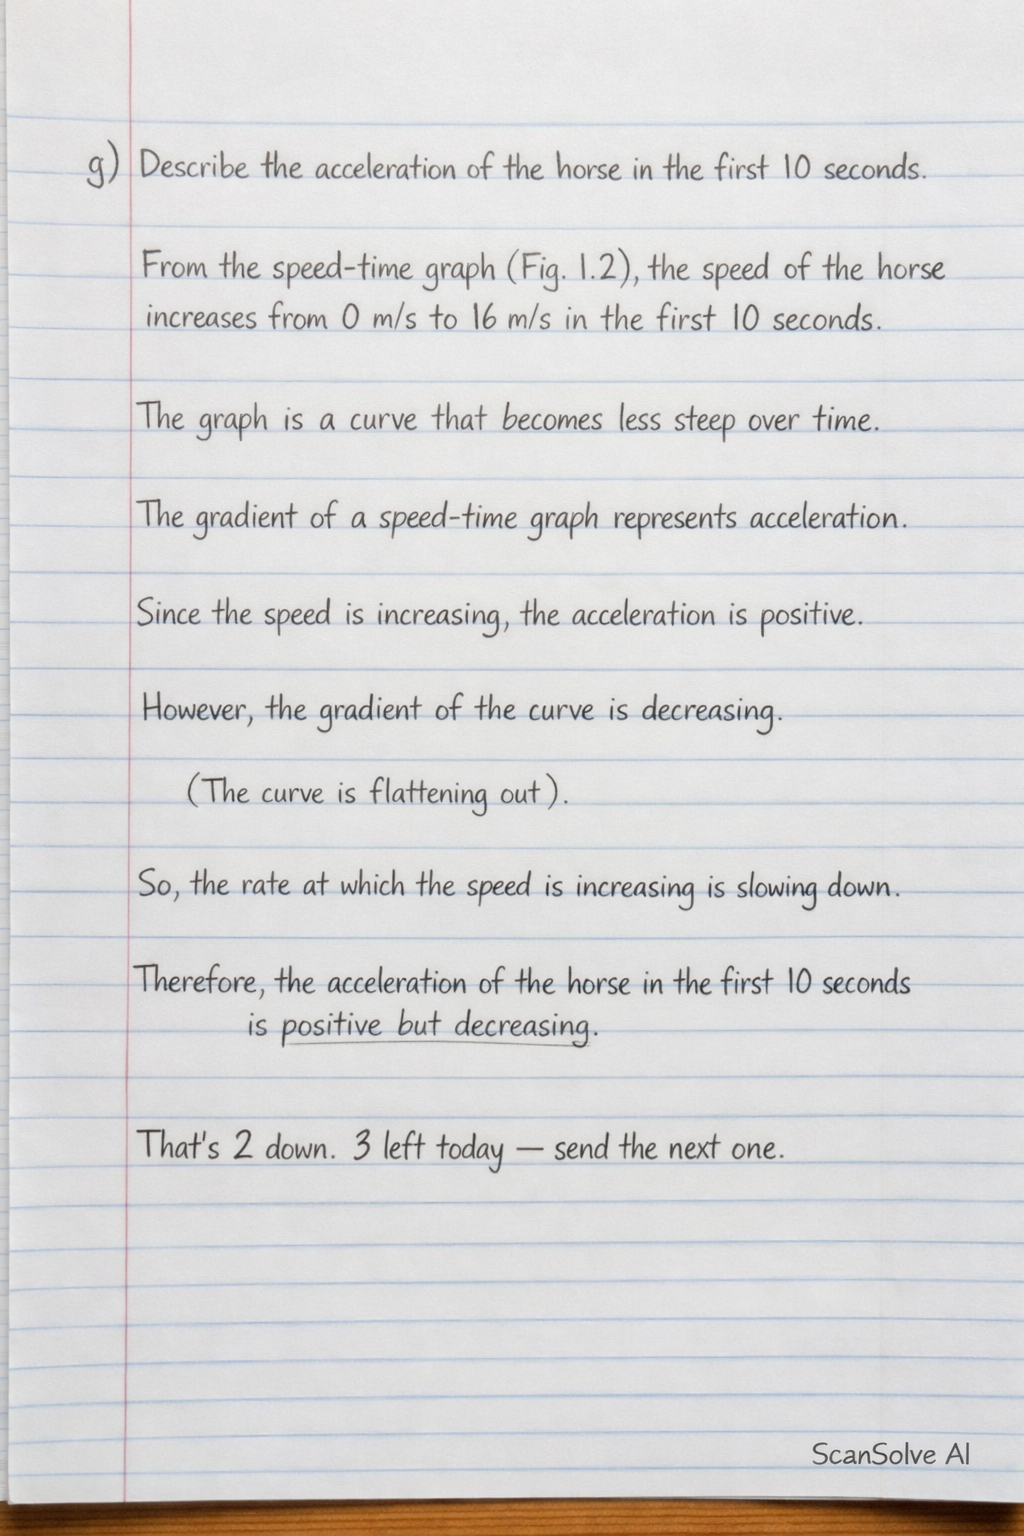 g) Describe the acceleration of the horse in the first 10 seconds.
From the speed-time graph (Fig. 1.2), the speed of the horse
increases from 0 m/s to 16 m/s in the first 10 seconds.
The graph is a curve that becomes less steep over time.
The gradient of a speed-time graph represents acceleration.
Since the speed is increasing, the acceleration is positive.
However, the gradient of the curve is decreasing.
(The curve is flattening out).
So, the rate at which the speed is increasing is slowing down.
Therefore, the acceleration of the horse in the first 10 seconds
is positive but decreasing.
That's 2 down. 3 left today — send the next one.
ScanSolve AI